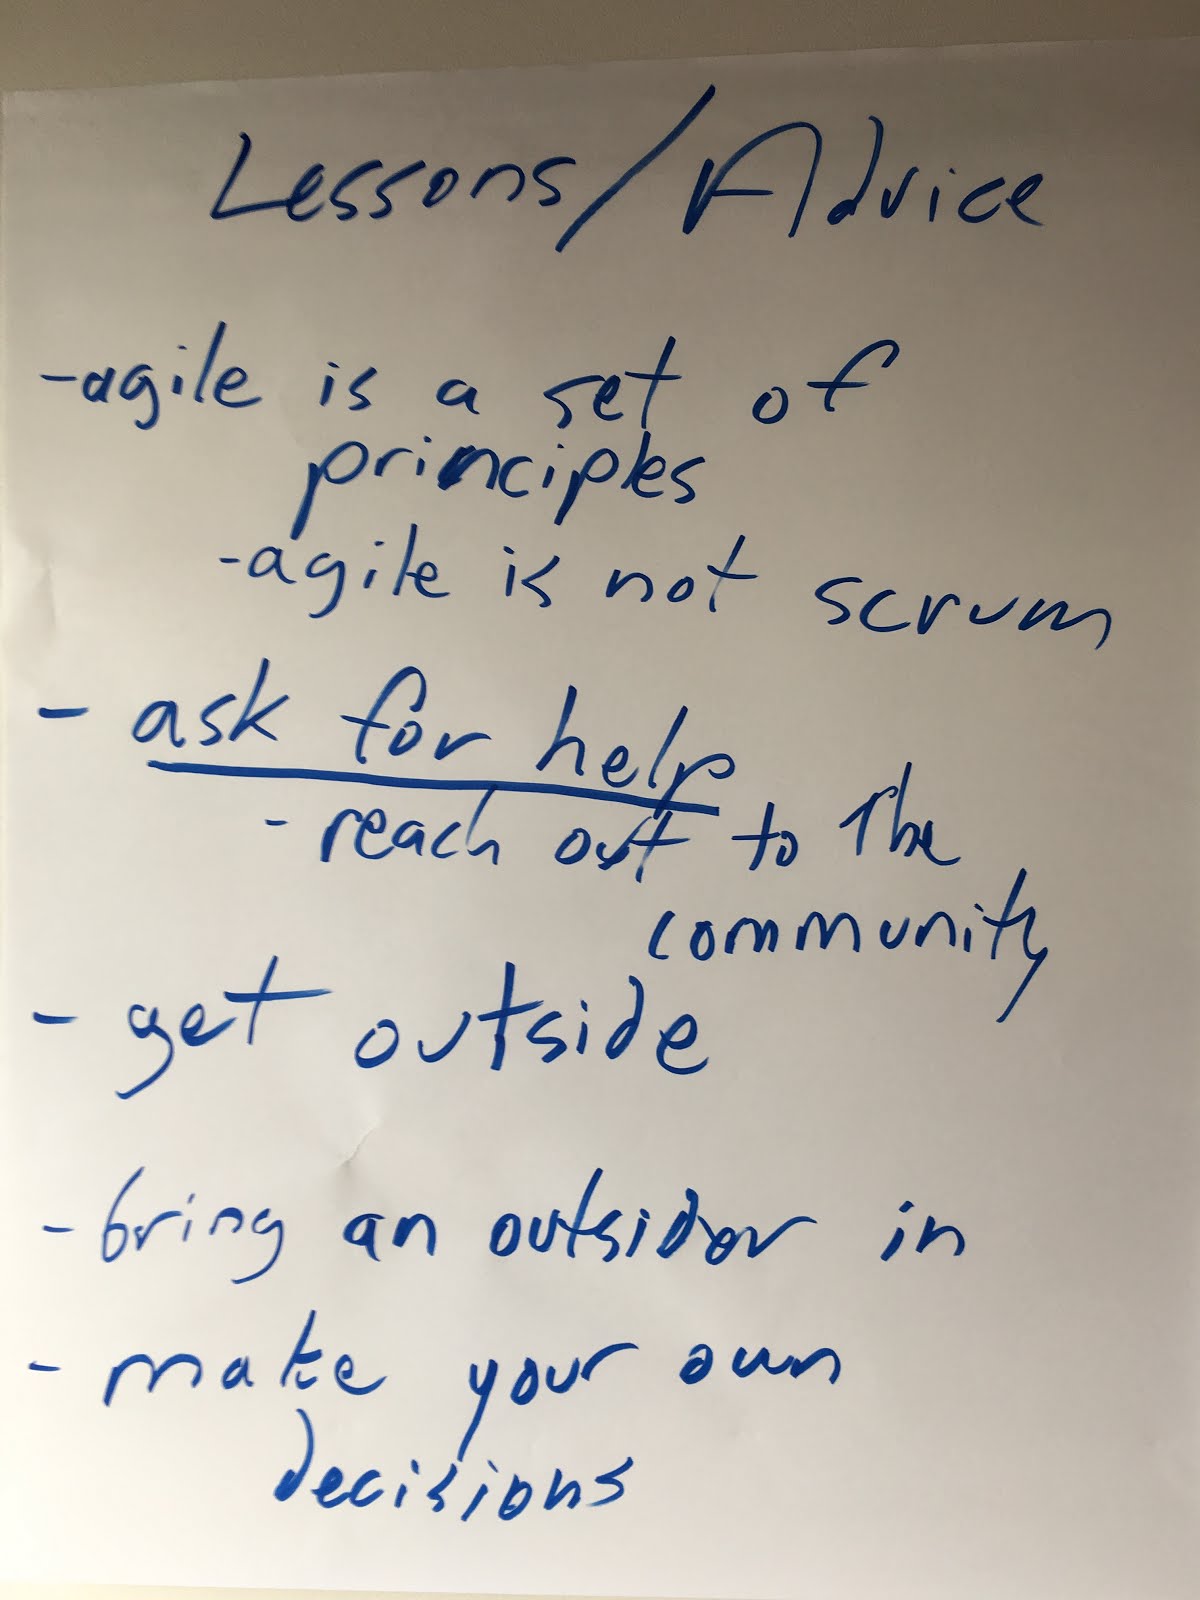 Lessons/Advice
-agile is a set of
principles
-agile is not scrum
- ask for help
- reach out to the
community
- get outside
- bring an outsider in
- make your own
decisions